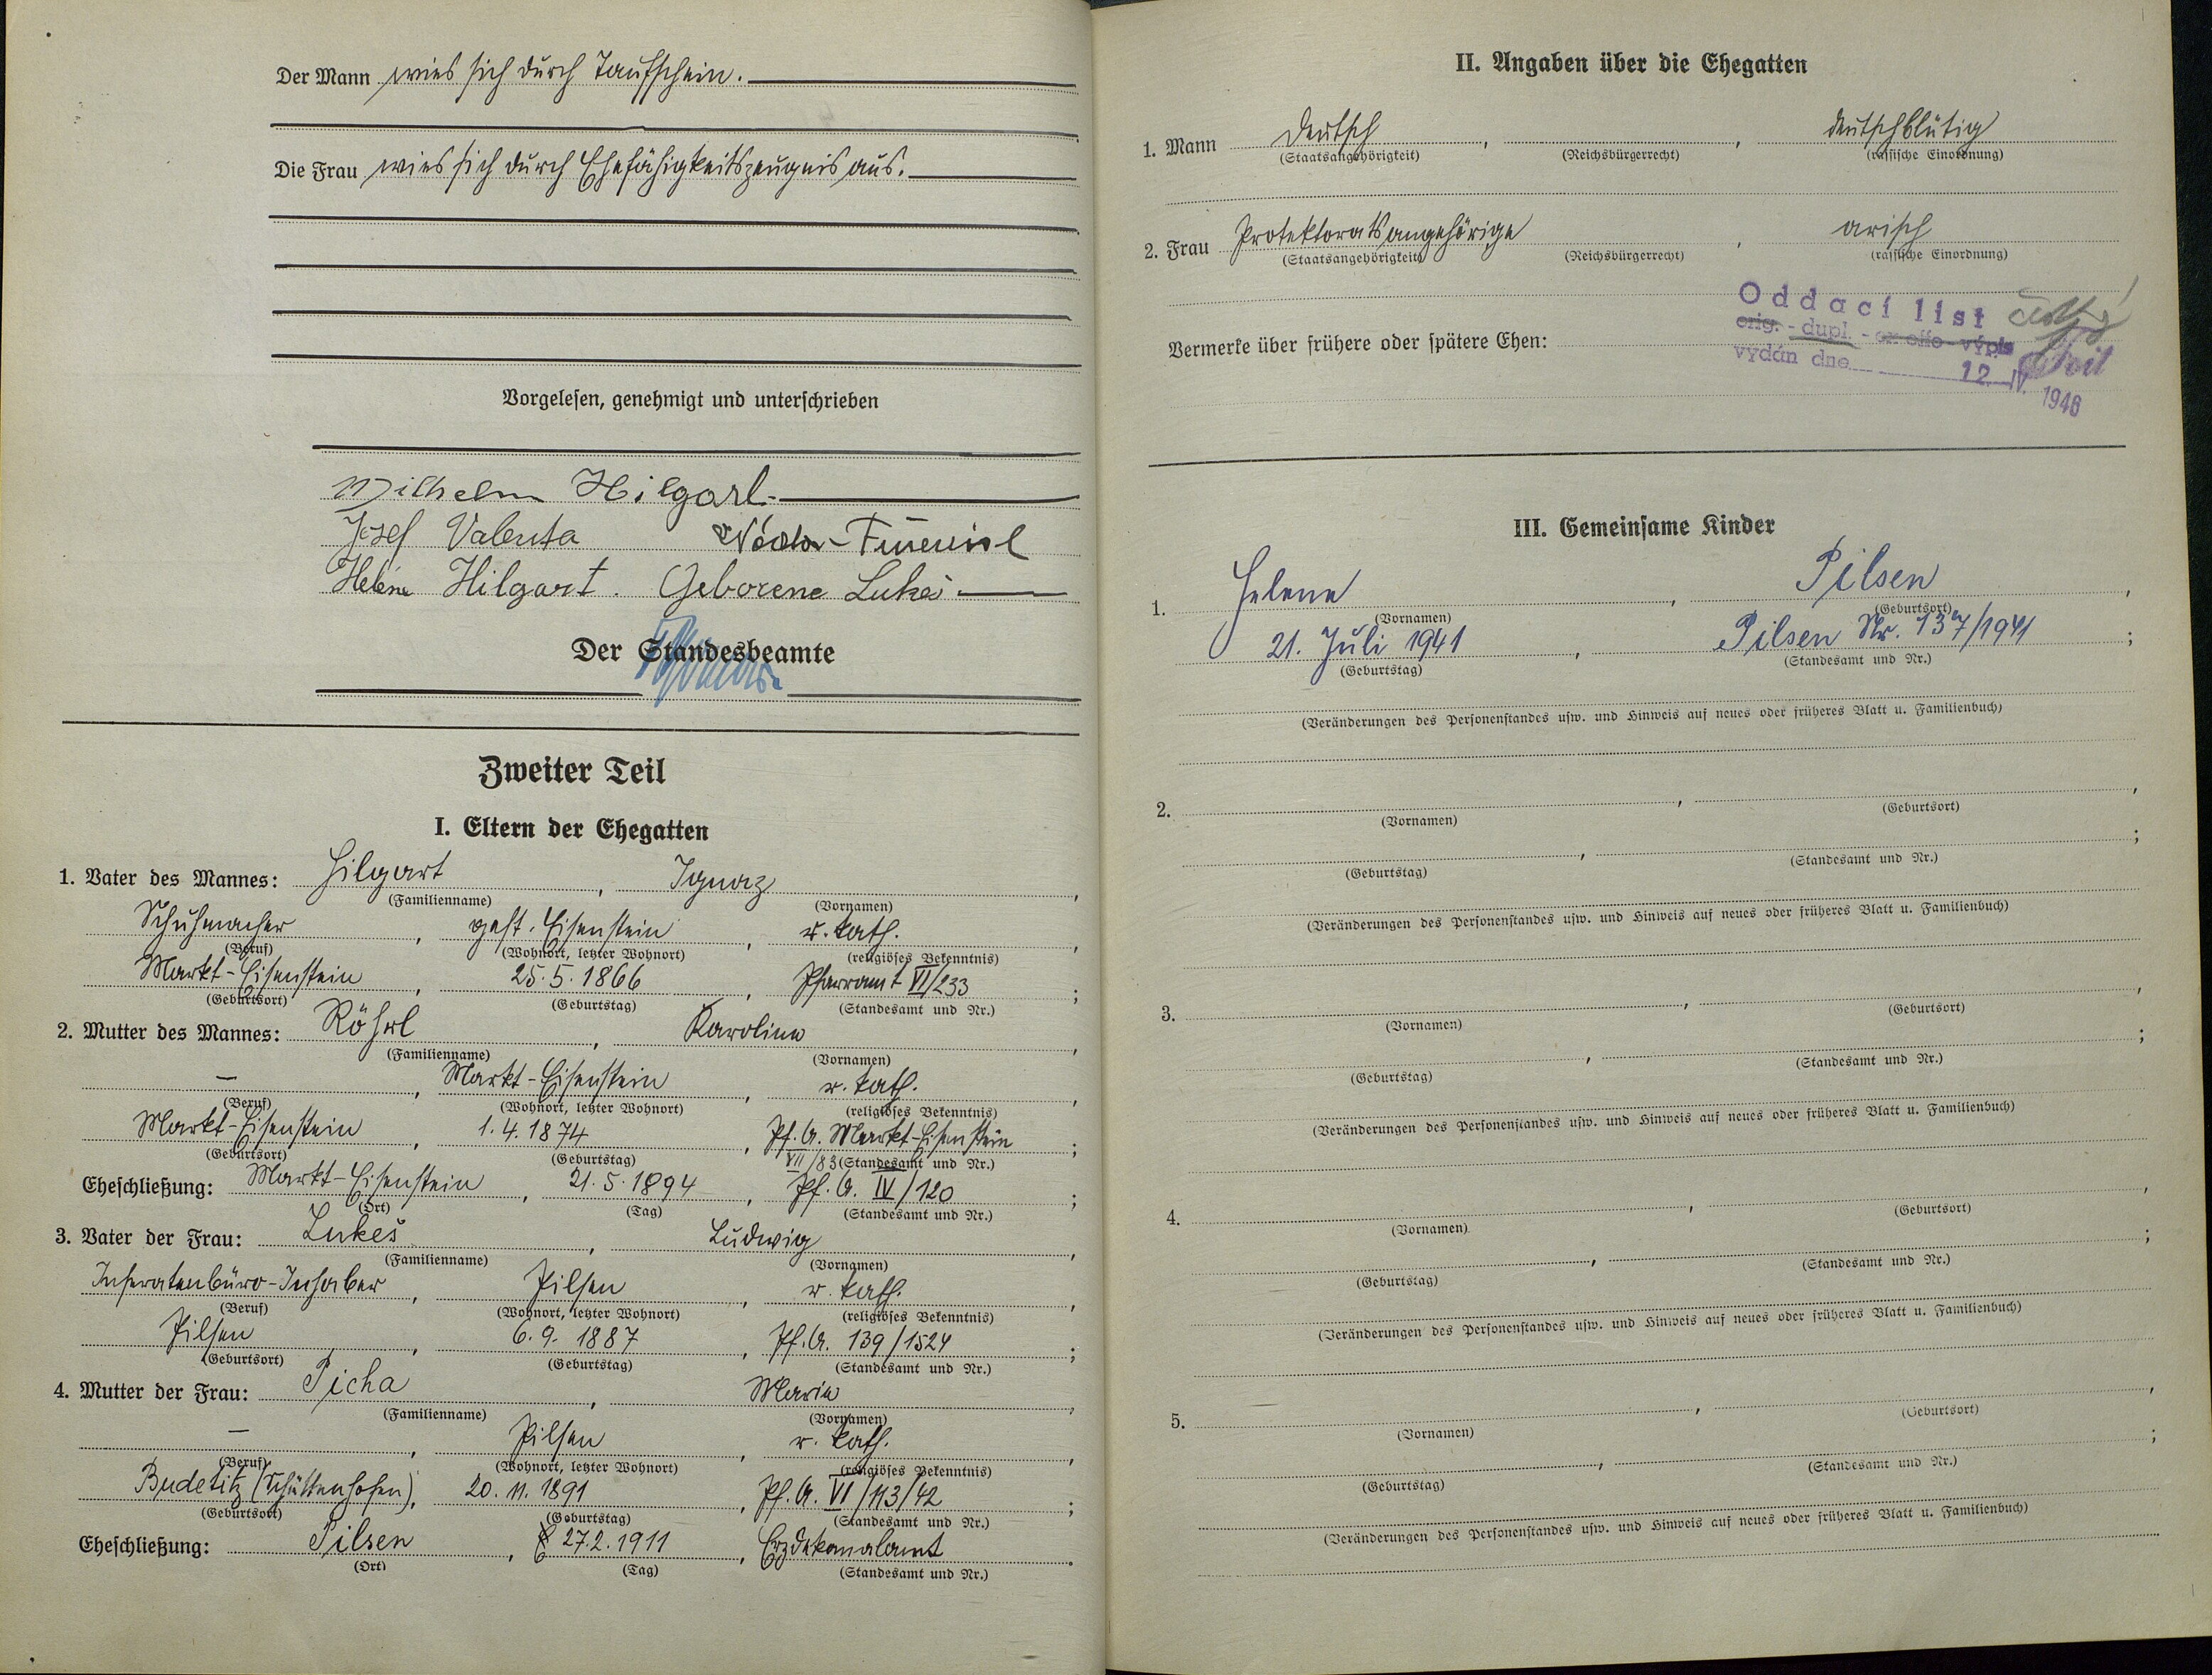 Der Mann wies sich durch Taufschein.
Die Frau wies sich durch Ehefähigkeitszeugnis aus.
Vorgelesen, genehmigt und unterschrieben
Wilhelm Hilgarl.
Josef Valenta
Helene Hilgart. Geborene Lukeš
Der Standesbeamte
Zweiter Teil
I. Eltern der Ehegatten
1. Vater des Mannes: Hilgart, Ignaz,
(Familienname) (Vornamen)
Schuhmacher, gest. Eisenstein, r. kath.,
(Beruf) (Wohnort, letzter Wohnort) (religiöses Bekenntnis)
Markt-Eisenstein, 25.5.1866, Pfarramt VI/233;
(Geburtsort) (Geburtstag) (Standesamt und Nr.)
2. Mutter des Mannes: Röhrl, Karolina,
(Familienname) (Vornamen)
—, Markt-Eisenstein, r. kath.,
(Beruf) (Wohnort, letzter Wohnort) (religiöses Bekenntnis)
Markt-Eisenstein, 1.4.1874, Pf. A. Markt-Eisenstein;
(Geburtsort) (Geburtstag) VII/83 (Standesamt und Nr.)
Eheschließung: Markt-Eisenstein, 21.5.1894, Pf. A. IV/120;
(Ort) (Tag) (Standesamt und Nr.)
3. Vater der Frau: Lukeš, Ludwig,
(Familienname) (Vornamen)
Inseratenbüro-Inhaber, Pilsen, r. kath.,
(Beruf) (Wohnort, letzter Wohnort) (religiöses Bekenntnis)
Pilsen, 6.9.1887, Pf. A. 139/1524;
(Geburtsort) (Geburtstag) (Standesamt und Nr.)
4. Mutter der Frau: Picha, Maria,
(Familienname) (Vornamen)
—, Pilsen, r. kath.,
(Beruf) (Wohnort, letzter Wohnort) (religiöses Bekenntnis)
Budetitz (Schüttenhofen), 20.11.1891, Pf. A. VI/113/42;
(Geburtsort) (Geburtstag) (Standesamt und Nr.)
Eheschließung: Pilsen, 27.2.1911, Erzdekanalamt.
(Ort) (Tag) (Standesamt und Nr.)
II. Angaben über die Ehegatten
1. Mann deutsch, , deutschblütig
(Staatsangehörigkeit) (Reichsbürgerrecht) (rassische Einordnung)
2. Frau Protektoratsangehörige, arisch
(Staatsangehörigkeit) (Reichsbürgerrecht) (rassische Einordnung)
Oddací list
orig. - dupl. - ex offo - výpis
vydán dne 12. IV. 1948
Vermerke über frühere oder spätere Ehen:
III. Gemeinsame Kinder
1. Helene, Pilsen,
(Vornamen) (Geburtsort)
21. Juli 1941, Pilsen Nr. 137/1941;
(Geburtstag) (Standesamt und Nr.)
(Veränderungen des Personenstandes usw. und Hinweis auf neues oder früheres Blatt u. Familienbuch)
2. , ,
(Vornamen) (Geburtsort)
, ;
(Geburtstag) (Standesamt und Nr.)
(Veränderungen des Personenstandes usw. und Hinweis auf neues oder früheres Blatt u. Familienbuch)
3. , ,
(Vornamen) (Geburtsort)
, ;
(Geburtstag) (Standesamt und Nr.)
(Veränderungen des Personenstandes usw. und Hinweis auf neues oder früheres Blatt u. Familienbuch)
4. , ,
(Vornamen) (Geburtsort)
, ;
(Geburtstag) (Standesamt und Nr.)
(Veränderungen des Personenstandes usw. und Hinweis auf neues oder früheres Blatt u. Familienbuch)
5. , ,
(Vornamen) (Geburtsort)
, ;
(Geburtstag) (Standesamt und Nr.)
(Veränderungen des Personenstandes usw. und Hinweis auf neues oder früheres Blatt u. Familienbuch)